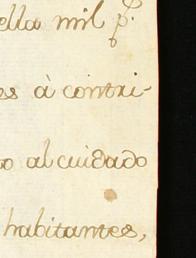 ella mil p.
es à contri-
o al cuidado
habitantes,